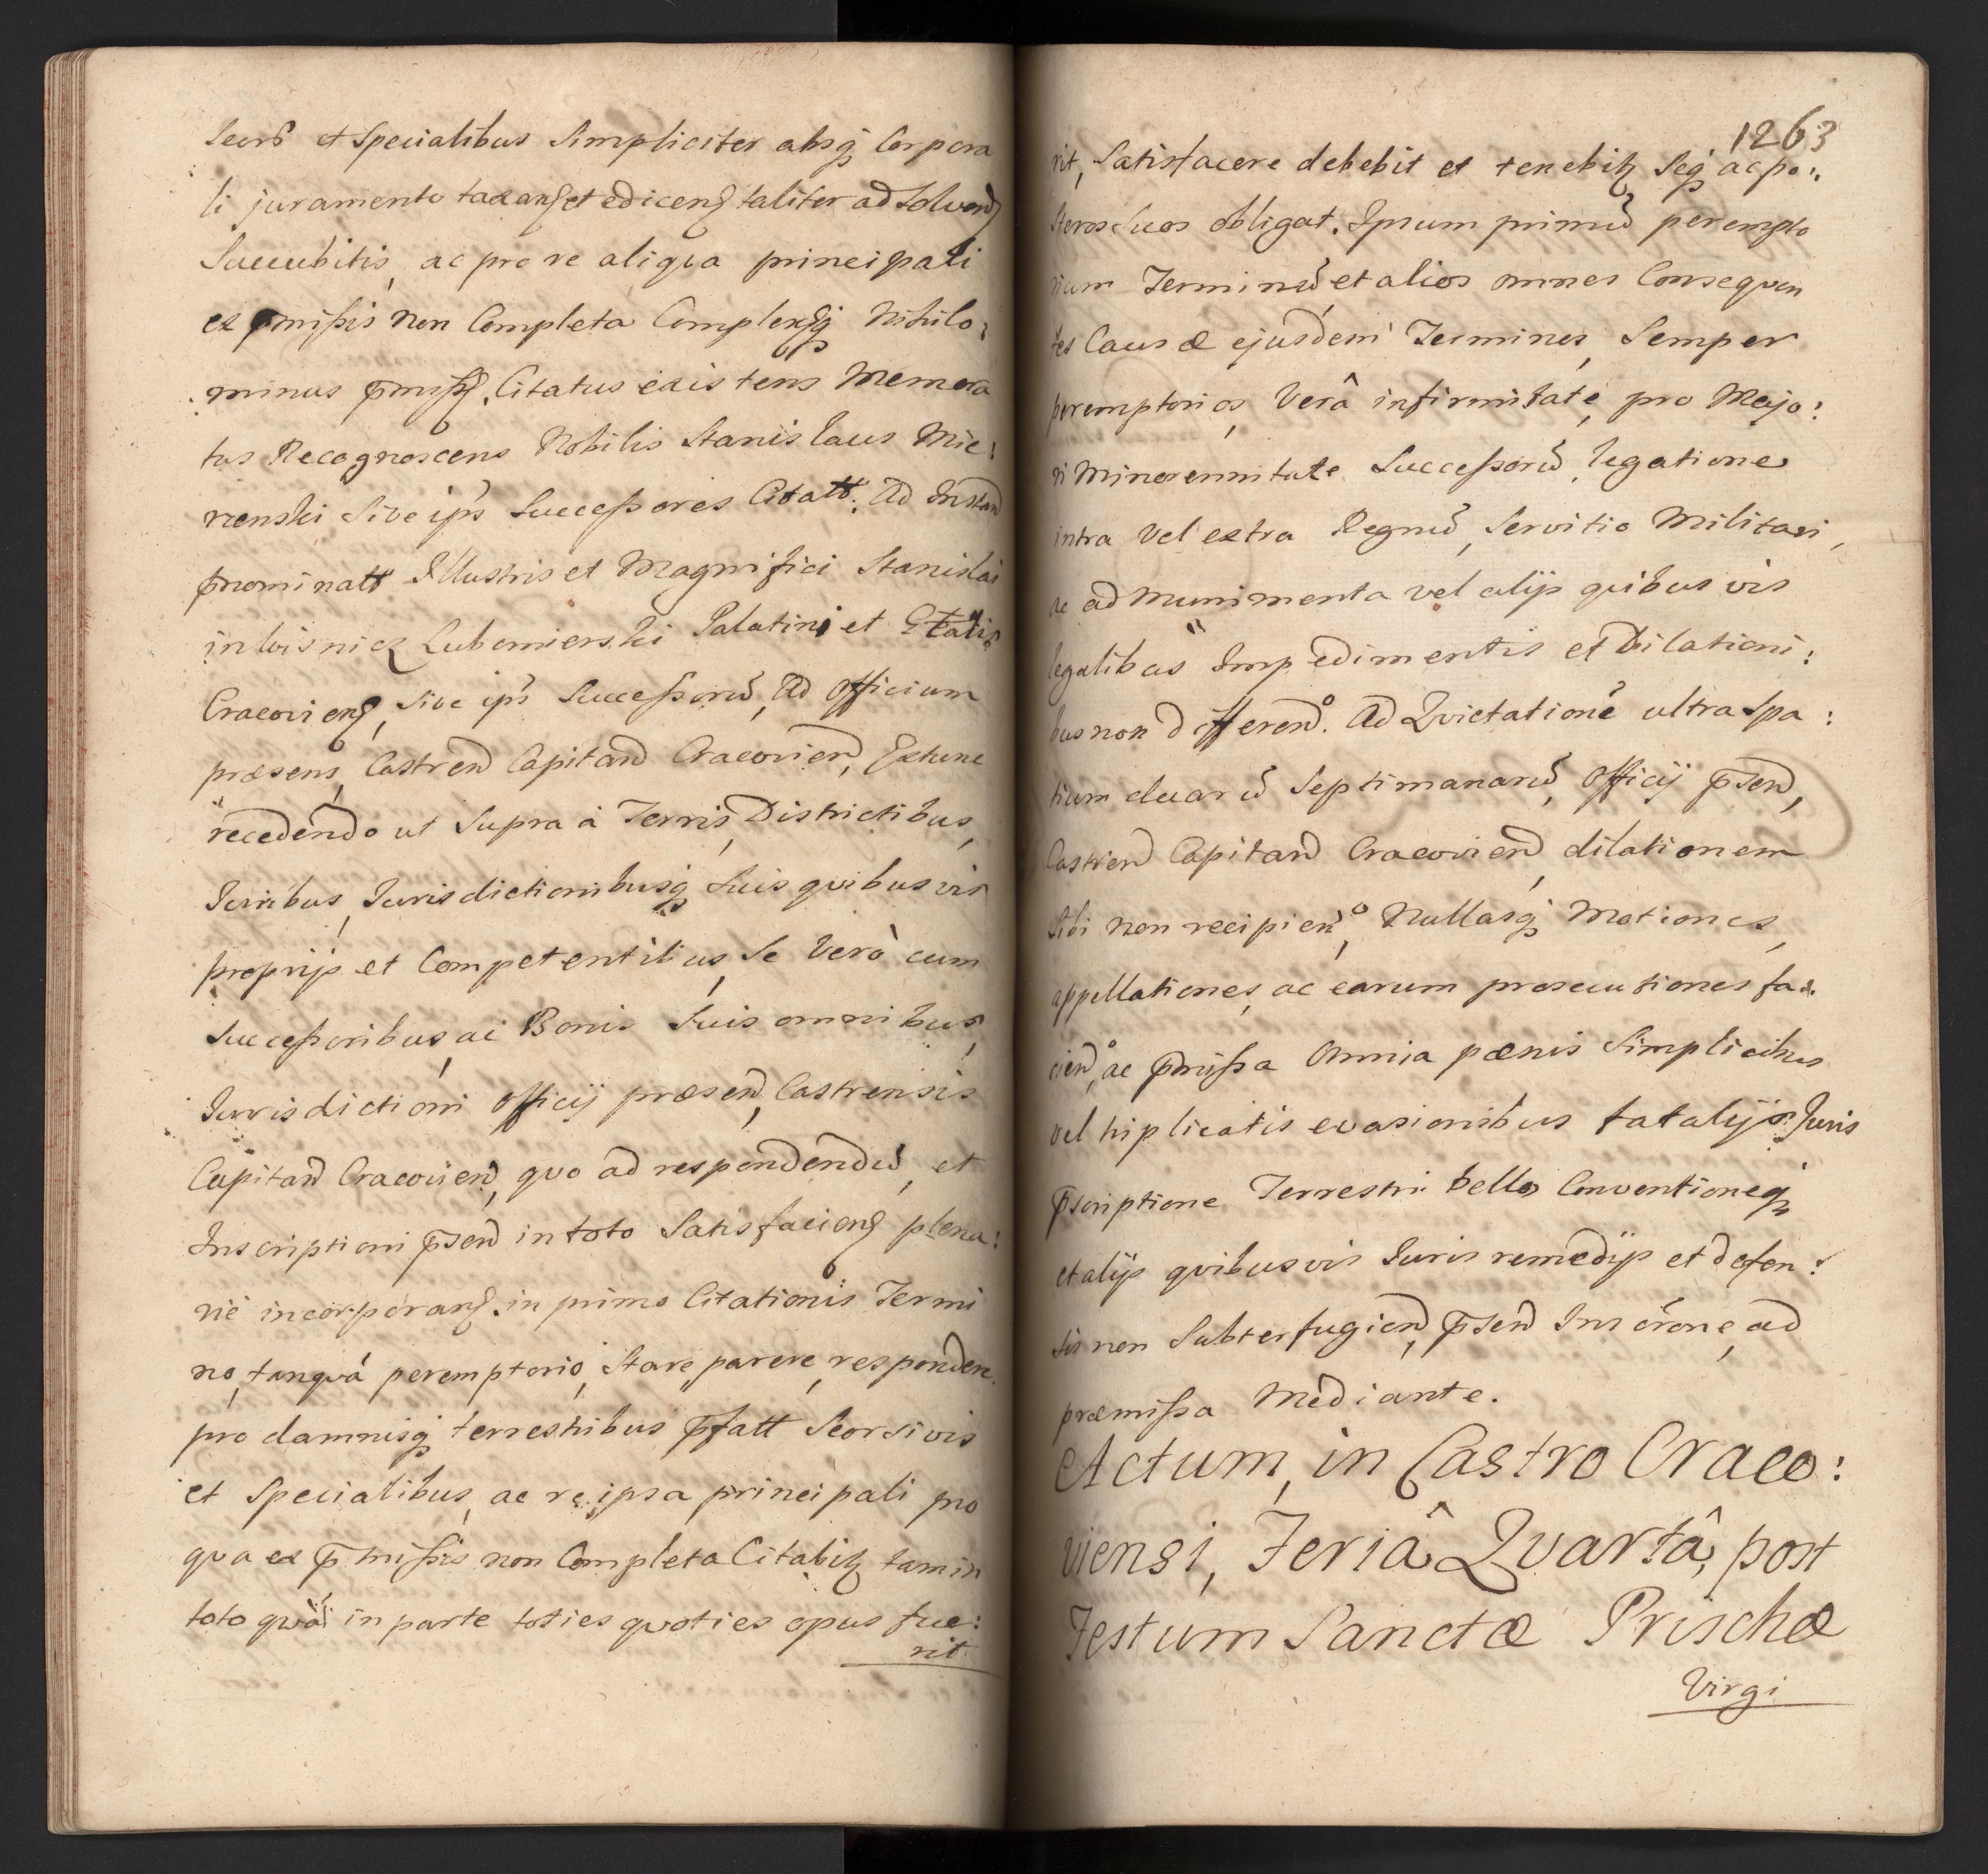 Seors et Specialibus Simpliciter absq Corpora
li juramento taxan et edicen taliter ad Solvend
Succubitis, ac pro re aliqva principali
ex pmissis non Completa Complensq Nihilo:
minus pmiss. Citatus existens Memora
tus Recognoscens Nobilis Stanislaus Mie:
rienski Sive ips Successores Citatt. Ad Instan
pnominatt Illustris et Magnifici Stanislai
in Wisnicz Lubomierski Palatini et Gtalis
Cracovien, Sive ips Successorū, Ad Officium
præsens, Castren Capitan Cracovien, Extunc
recedendo ut Supra à Terris, Districtibus,
Juribus, Jurisdictionibusq Suis qvibusvis
proprijs et Competentibus, Se Verò cum
Successoribus, ac Bonis Suis omnibus,
Jurisdictioni Officij præsen, Castrensis
Capitan Cracovien, qvo ad respondendū, et
Inscriptioni psen in toto Satisfacien plena:
rie incorporan. in primo Citationis Termi
no, tanqvá peremptorio, Stare parere, respondere.
pro damnisq terrestribus pfatt Seorsivis
et Specialibus, ac re ipsa principali pro
qva ex pmissis non Completa Citabitz tam in
toto qvá in parte toties qvoties opus fue:
rit
1263
rit, Satisfacere debebit et tenebitz Seq ac po:
steros Suos obligat. Ipsum primū perempto
rium Terminū, et alios omnes Conseqven
tes Causæ ejusdem Terminos, Semper
peremptorios, Verâ infirmitate, pro Majo:
ri Minorennitate Successorū, legatione
intra Vel extra Regnū, Servitio Militari,
ac ad Munimenta vel alijs qvibusvis
legalibus Impedimentis et Dilationi:
bus non differend. Ad Qvictationē ultra Spa:
tium duarū Septimanarū, Officij psen,
Castren Capitan Cracovien, dilationem
Sibi non recipien, Nullasq Motiones,
appellationes, ac earum prosecutiones fa:
cien, ac pmissa Omnia pœnis Simplicibus
vel triplicatis evasionibus fatalijs Juris
pscriptione Terrestri bello Conventioneq
et alijs qvibusvis Juris remedijs et defen:
sis non Subterfugien, psen Inscrone, ad
præmissa Mediante.
Actum, in Castro Craco:
viensi, Feriâ Qvartâ, post
Festum Sanctæ Prischæ
Virgi